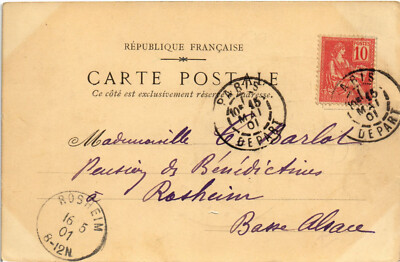 RÉPUBLIQUE FRANÇAISE
CARTE POSTALE
Ce côté est exclusivement réservé à l'adresse.
10
PARIS
10E 45
MAI
01
DEPART
PARIS
45
MAI
01
DEPART
Mademoiselle C. Barlot
Pension des Bénédictines
à
Rosheim
Basse Alsace
ROSHEIM
16 5
01
8-12N